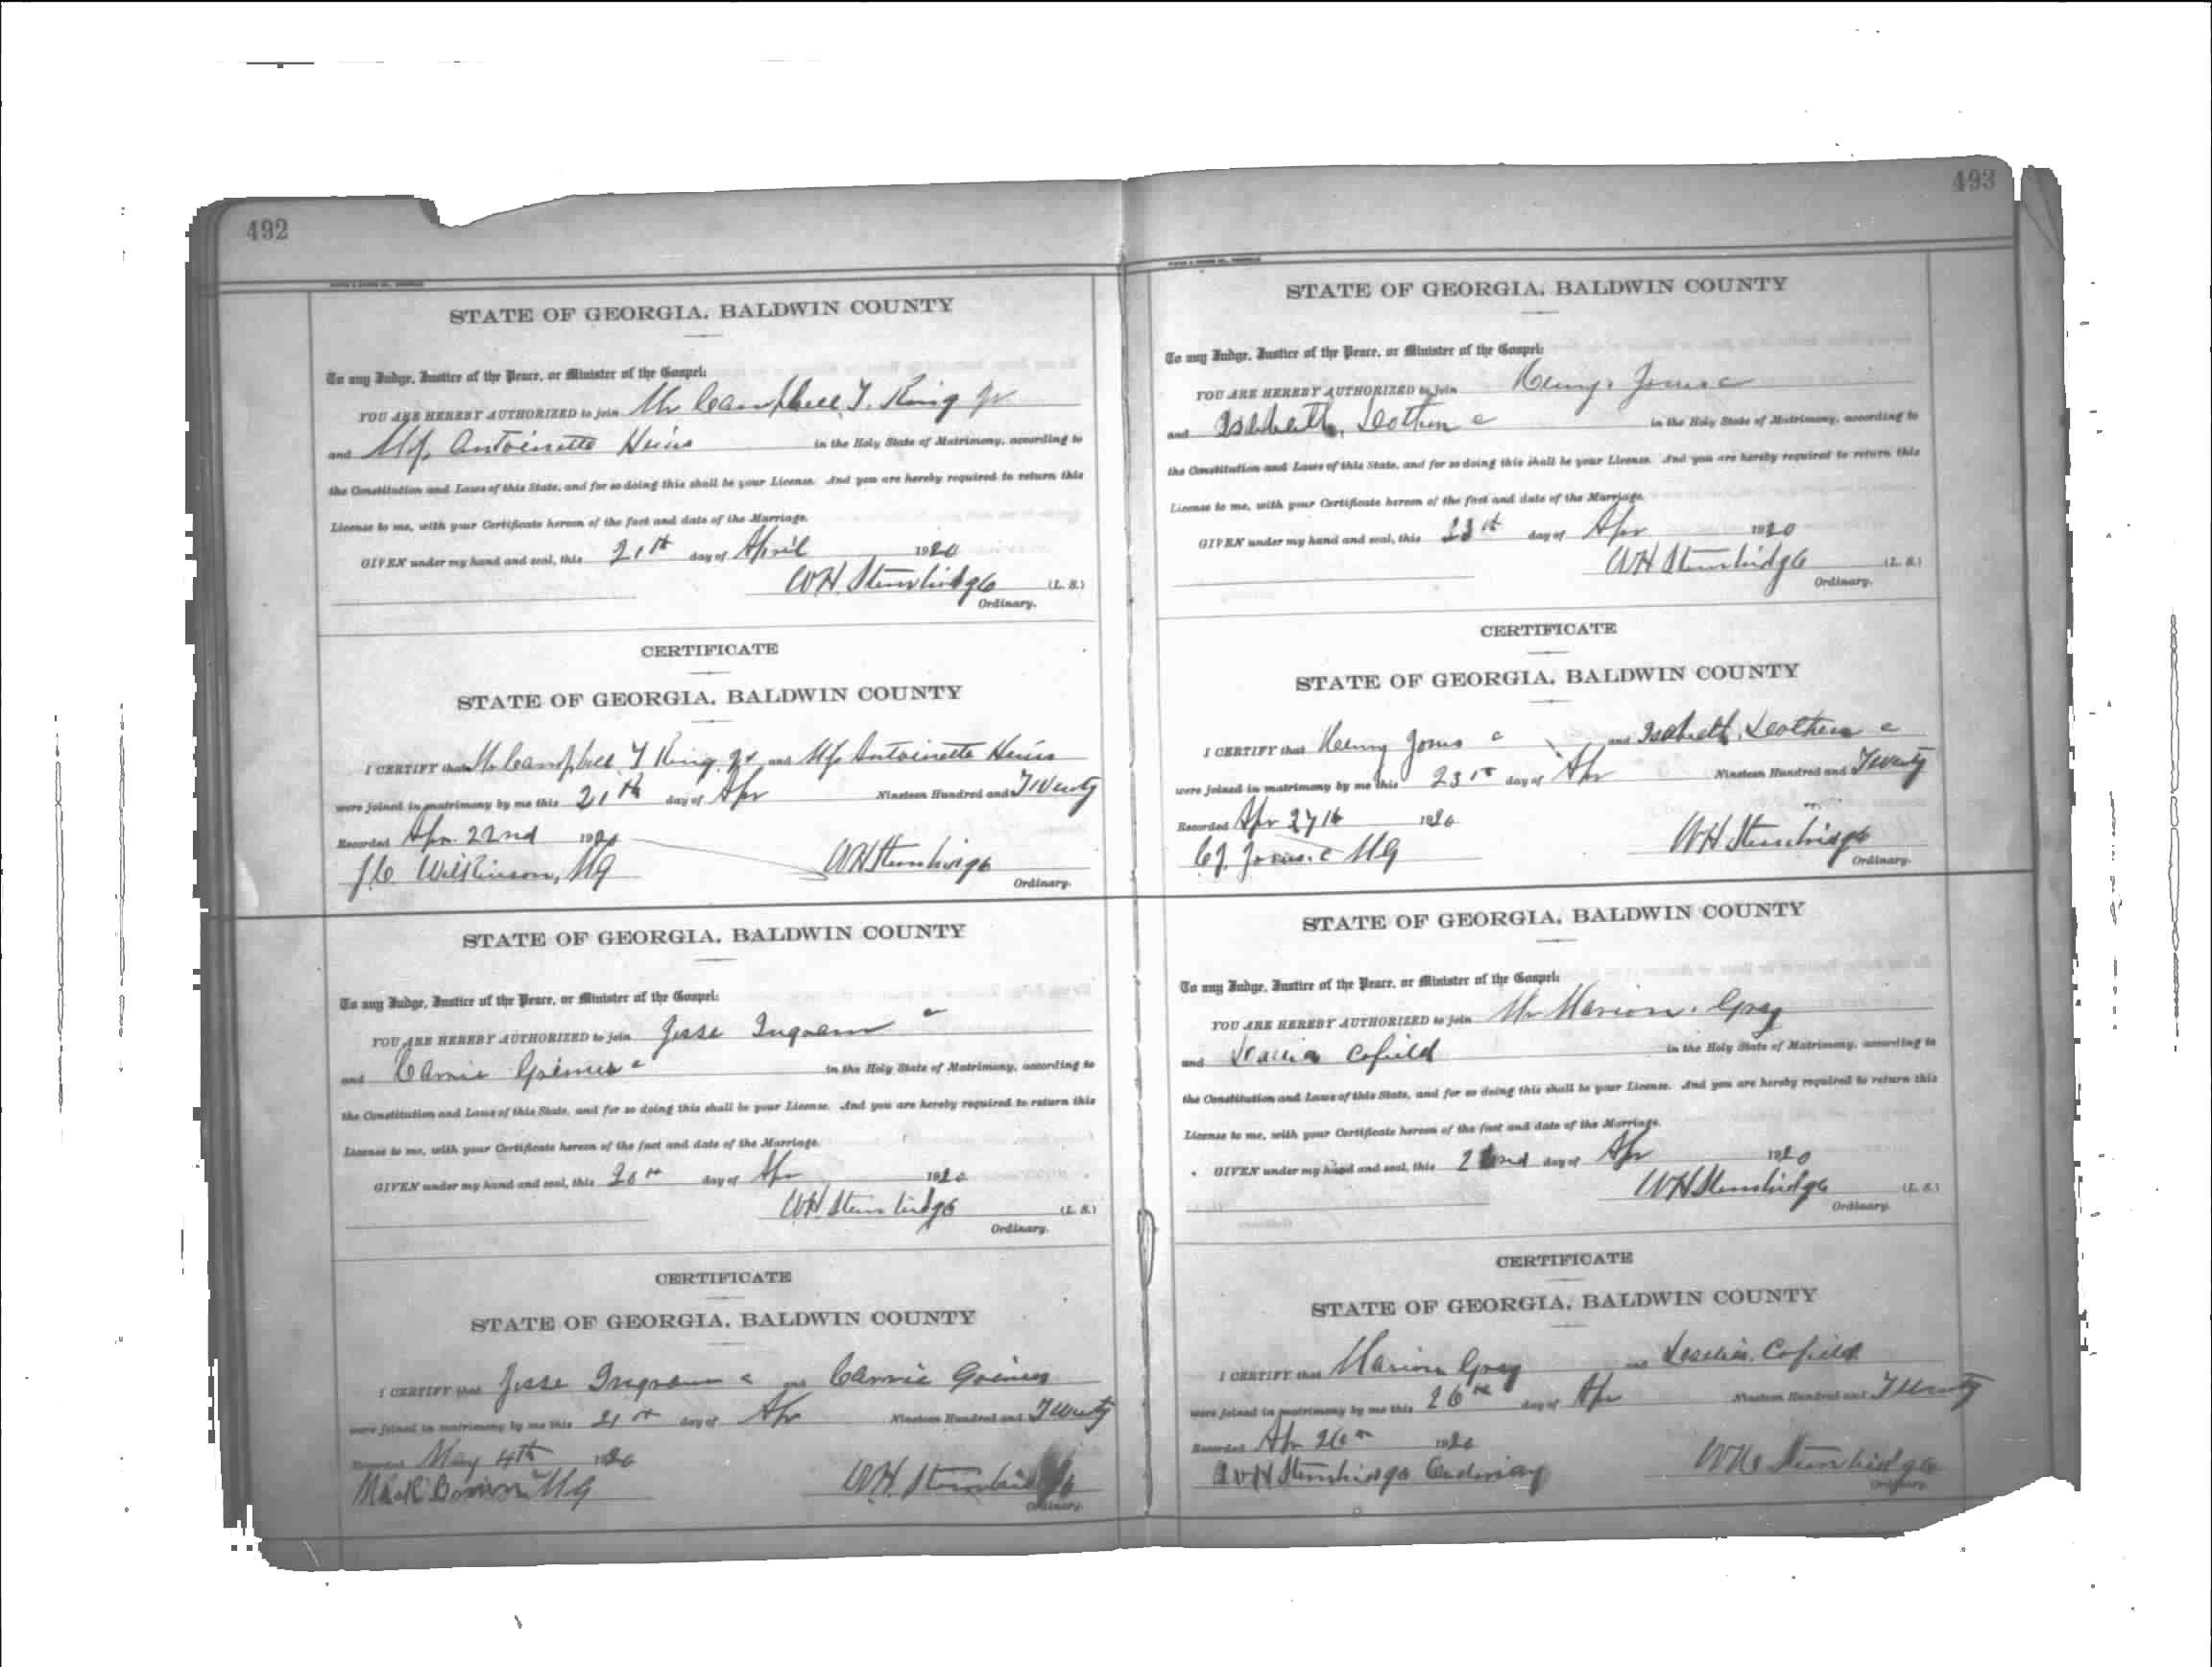 492
STATE OF GEORGIA, BALDWIN COUNTY
To any Judge, Justice of the Peace, or Minister of the Gospel:
YOU ARE HEREBY AUTHORIZED to join Mr Campbell T. King Jr
and Antoinette in the Holy State of Matrimony, according to
the Constitution and Laws of this State, and for so doing this shall be your License. And you are hereby required to return this
License to me, with your Certificate hereon of the fact and date of the Marriage.
GIVEN under my hand and seal, this 21st day of April 1920
WH Stembridge (L. S.)
Ordinary.
CERTIFICATE
STATE OF GEORGIA, BALDWIN COUNTY
I CERTIFY that Mr Campbell T King Jr and Antoinette
were joined in matrimony by me this 21st day of Apr Nineteen Hundred and Twenty
Recorded Apr. 22nd 1920
J.C. Wilkinson, MG WH Stembridge
Ordinary.
STATE OF GEORGIA, BALDWIN COUNTY
To any Judge, Justice of the Peace, or Minister of the Gospel:
YOU ARE HEREBY AUTHORIZED to join Jesse Ingram c
and Carrie c in the Holy State of Matrimony, according to
the Constitution and Laws of this State, and for so doing this shall be your License. And you are hereby required to return this
License to me, with your Certificate hereon of the fact and date of the Marriage.
GIVEN under my hand and seal, this 20th day of Apr 1920
WH Stembridge (L. S.)
Ordinary.
CERTIFICATE
STATE OF GEORGIA, BALDWIN COUNTY
I CERTIFY that Jesse Ingram c and Carrie
were joined in matrimony by me this 21st day of Apr Nineteen Hundred and Twenty
Recorded May 4th 1920
MG WH Stembridge
Ordinary.
493
STATE OF GEORGIA, BALDWIN COUNTY
To any Judge, Justice of the Peace, or Minister of the Gospel:
YOU ARE HEREBY AUTHORIZED to join Henry Jones c
and c in the Holy State of Matrimony, according to
the Constitution and Laws of this State, and for so doing this shall be your License. And you are hereby required to return this
License to me, with your Certificate hereon of the fact and date of the Marriage.
GIVEN under my hand and seal, this day of Apr 1920
WH Stembridge (L. S.)
Ordinary.
CERTIFICATE
STATE OF GEORGIA, BALDWIN COUNTY
I CERTIFY that Henry Jones c and c
were joined in matrimony by me this 23rd day of Apr Nineteen Hundred and Twenty
Recorded Apr 27th 1920
Jones c MG WH Stembridge
Ordinary.
STATE OF GEORGIA, BALDWIN COUNTY
To any Judge, Justice of the Peace, or Minister of the Gospel:
YOU ARE HEREBY AUTHORIZED to join Mr Marion Gray
and Cofield in the Holy State of Matrimony, according to
the Constitution and Laws of this State, and for so doing this shall be your License. And you are hereby required to return this
License to me, with your Certificate hereon of the fact and date of the Marriage.
GIVEN under my hand and seal, this 22nd day of Apr 1920
WH Stembridge (L. S.)
Ordinary.
CERTIFICATE
STATE OF GEORGIA, BALDWIN COUNTY
I CERTIFY that Marion Gray and Cofield
were joined in matrimony by me this 26th day of Apr Nineteen Hundred and Twenty
Recorded Apr 26th 1920
WH Stembridge Ordinary WH Stembridge
Ordinary.